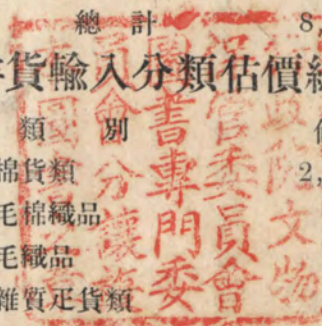 總計 8,
貨輸入分類估價
類別
棉貨類 2,
毛棉織品
毛織品
雜質疋貨類
文物
保管委員會
圖書專門委
員會分讓